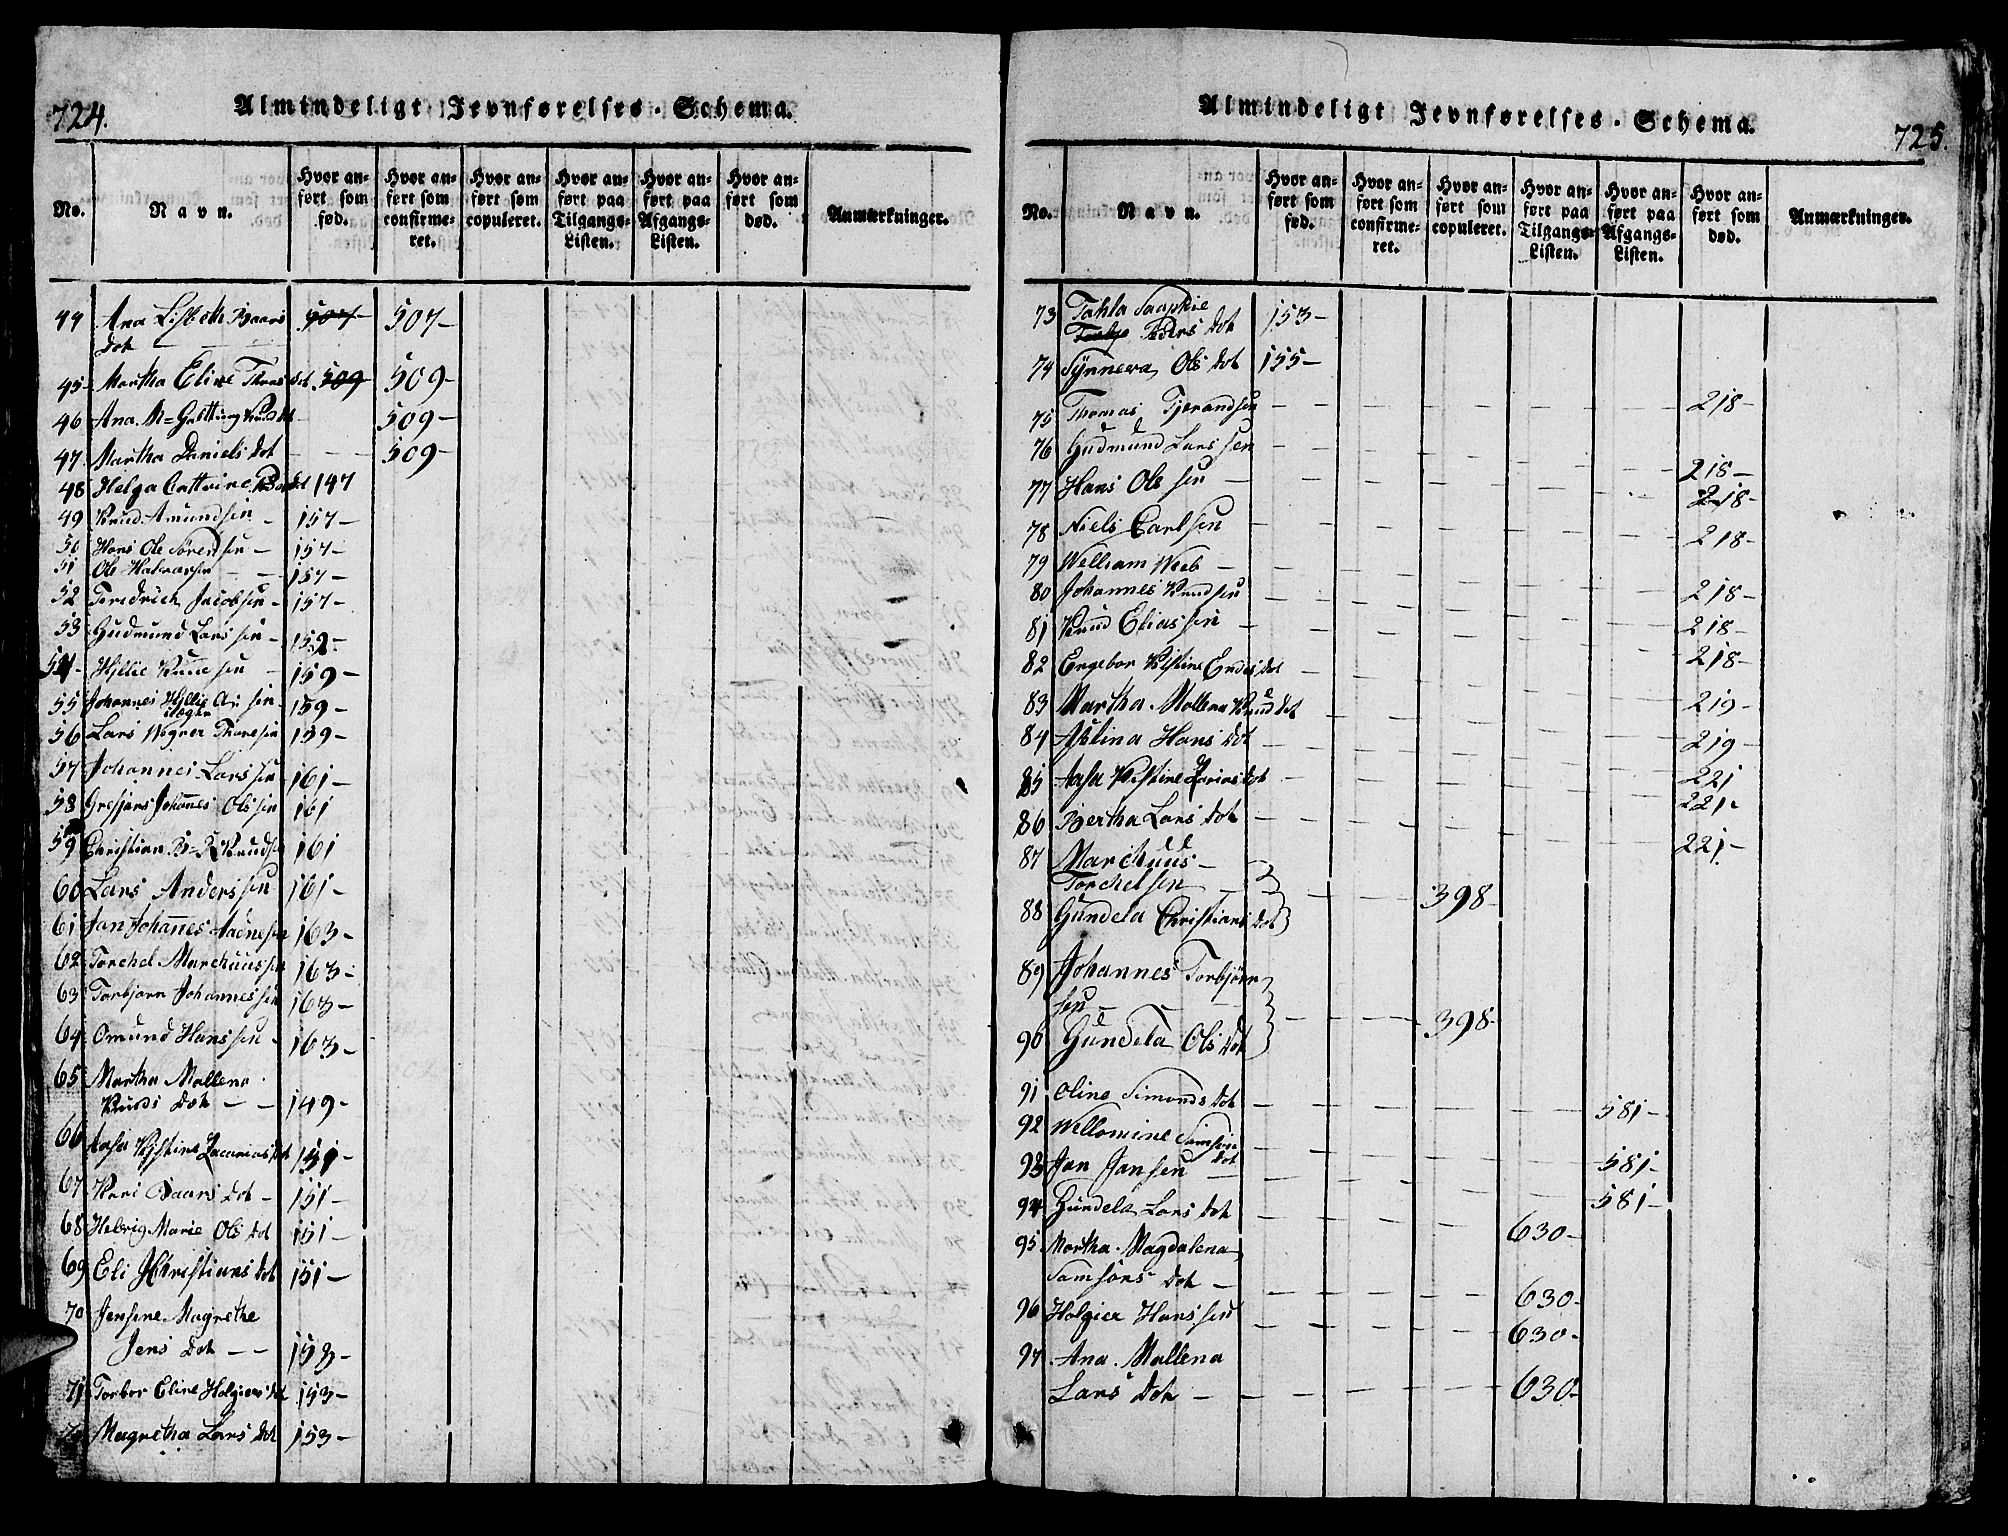 724.
Almindeligt Jevnførelses-Schema.
No. Navn. Hvor anført som fød. Hvor anført som confirmeret. Hvor anført som copuleret. Hvor anført paa Tilgangs-Listen. Hvor anført paa Afgangs-Listen. Hvor anført som død. Anmærkninger.
44 Ana Lisbeth Baars 507 507-
Dot
45- Martha Eline Thors dot 509 509-
46 Ana M= Knuds dot 509-
47. Martha Daniels dot - - 509-
48 Helga Cattrine dot 147
49 Knud Amundsen - 157-
50 Hans Ole Sørensen - 157-
51 Ole Halvorsen - - 157-
52 Feredrich Jacobsen - 157-
53 Gudmund Lars sen - 159-
54- Hellie Knue sen - 159-
55 Johannes Hellie sen - 159-
56 Lars Wegner Thoresen 159-
57 Johannes Lars sen 161-
58 Gresjars Johannes Ols sen 161
59 Christian B= Knudsen 161
60 Lars Anders sen 161-
61 Jan Johannes Aadnesen 163-
62 Torchel Marchuus sen 163-
63 Torbjorn Johannes sen 163-
64 Omund Hans sen - 163-
65 Martha Mallena
Knuds Dot - - 149-
66 Aasa Kistine Zacarias dot 151-
67 Kari Baars Dot - 151-
68 Helvig Marie Ols Dot 151-
69 Eli Christians dot 151-
70 Jensine Magrethe
Jens Dot - - 153-
71 Torbor Eline Holgiers dot 153-
72 Magretha Lars Dot 153-
725.
Almindeligt Jevnførelses-Schema.
No. Navn. Hvor anført som fød. Hvor anført som confirmeret. Hvor anført som copuleret. Hvor anført paa Tilgangs-Listen. Hvor anført paa Afgangs-Listen. Hvor anført som død. Anmærkninger.
73 Tahla Saaphie
Peders dot 153-
74 Synneva Ols dot 155-
75 Thomas Tjerandsen 218-
76 Gudmund Lars sen
77 Hans Ole sen - 218-
218-
78 Niels Carlsen 218-
79 Welliam Web -
80 Johannes Knudsen 218-
81 Knud Elias sen - 218-
82 Engebor Kistine Endes dot 218-
83 Martha Mallena Knud dot 219-
84 Astina Hans dot 219-
85 Aasa Kistine Zarias dot 221
86 Bertha Lars dot 221-
87 Marchuus - 221-
Torchelsen -
88 Gundela Christians dot 398-
89 Johannes Torbjørn
sen -
90 Gundela Ols dot 398-
91 Oline Simonds dot 581-
92 Wellomine Samsons
dot 581-
93 Jan Jansen - 581-
94 Gundela Lars dot 630-
95 Martha Magdalena
Samsons Dot - 630-
96 Holgier Hans sen 630-
97 Ana Mallena
Lars Dot - 630-